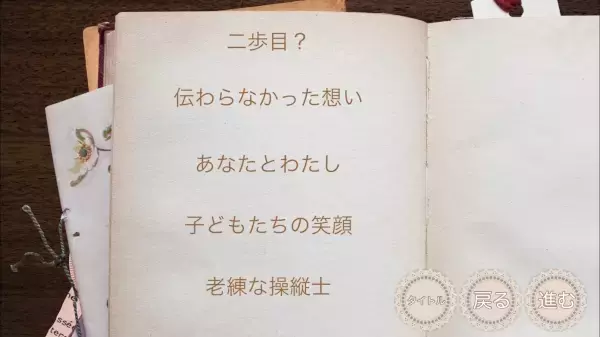 二歩目？
伝わらなかった想い
あなたとわたし
子どもたちの笑顔
老練な操縦士
タイトル
戻る
進む